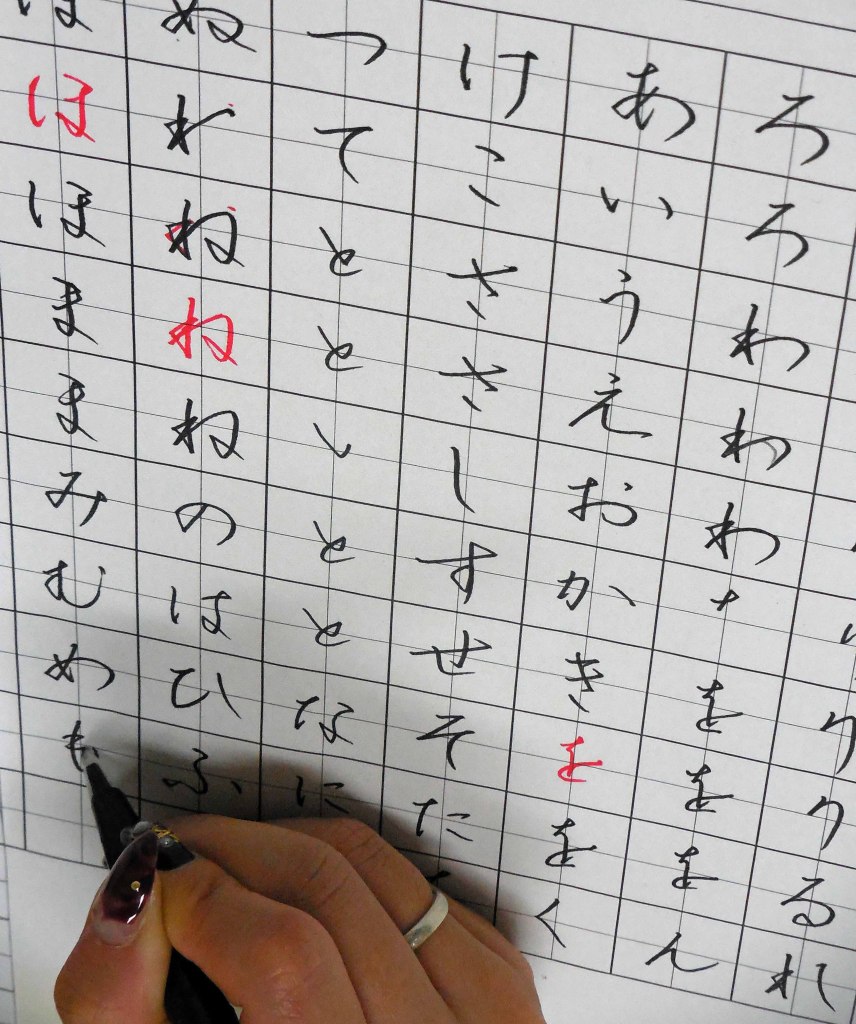 りりるれ
ろろわわわをををん
あいうえおかきををく
けこささしすせそた
つてととととなに
ぬねねねのはひふ
ほほままみむめも